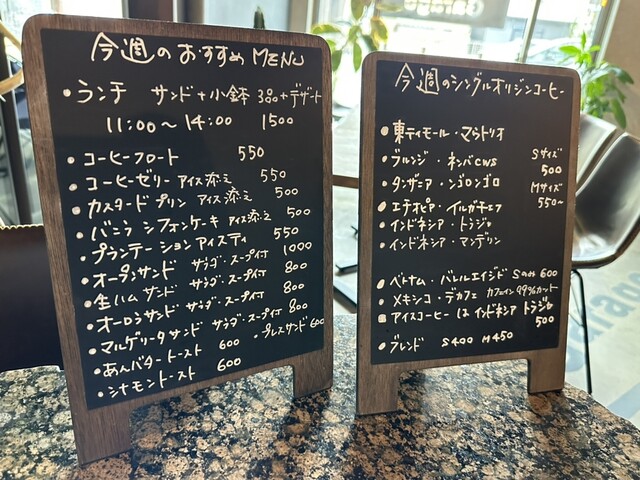 今週のおすすめ MENU
・ランチ サンド+小鉢 3品+デザート
11:00〜14:00 1500
・コーヒーフロート 550
・コーヒーゼリー アイス添え 550
・カスタードプリン アイス添え 500
・バニラ シフォンケーキ アイス添え 500
・プランテーションアイスティ 550
・オープンサンド サラダ・スープ付 1000
・生ハムサンド サラダ・スープ付 800
・オーロラサンド サラダ・スープ付 800
・マルゲリータサンド サラダ・スープ付 800
・あんバタートースト 600 ・プレスサンド 600
・シナモントースト 600
今週のシングルオリジンコーヒー
・東ティモール・マウトリオ
・ブルンジ・ネンバCWS Sサイズ
・タンザニア・ンゴロンゴロ 500
・エチオピア・イルガチェフ Mサイズ
・インドネシア・トラジャ 550〜
・インドネシア・マンデリン
・ベトナム・バレルエイジド Sのみ 600
・メキシコ・デカフェ カフェイン99%カット
・アイスコーヒーはインドネシア トラジャ
500
・ブレンド S400 M450